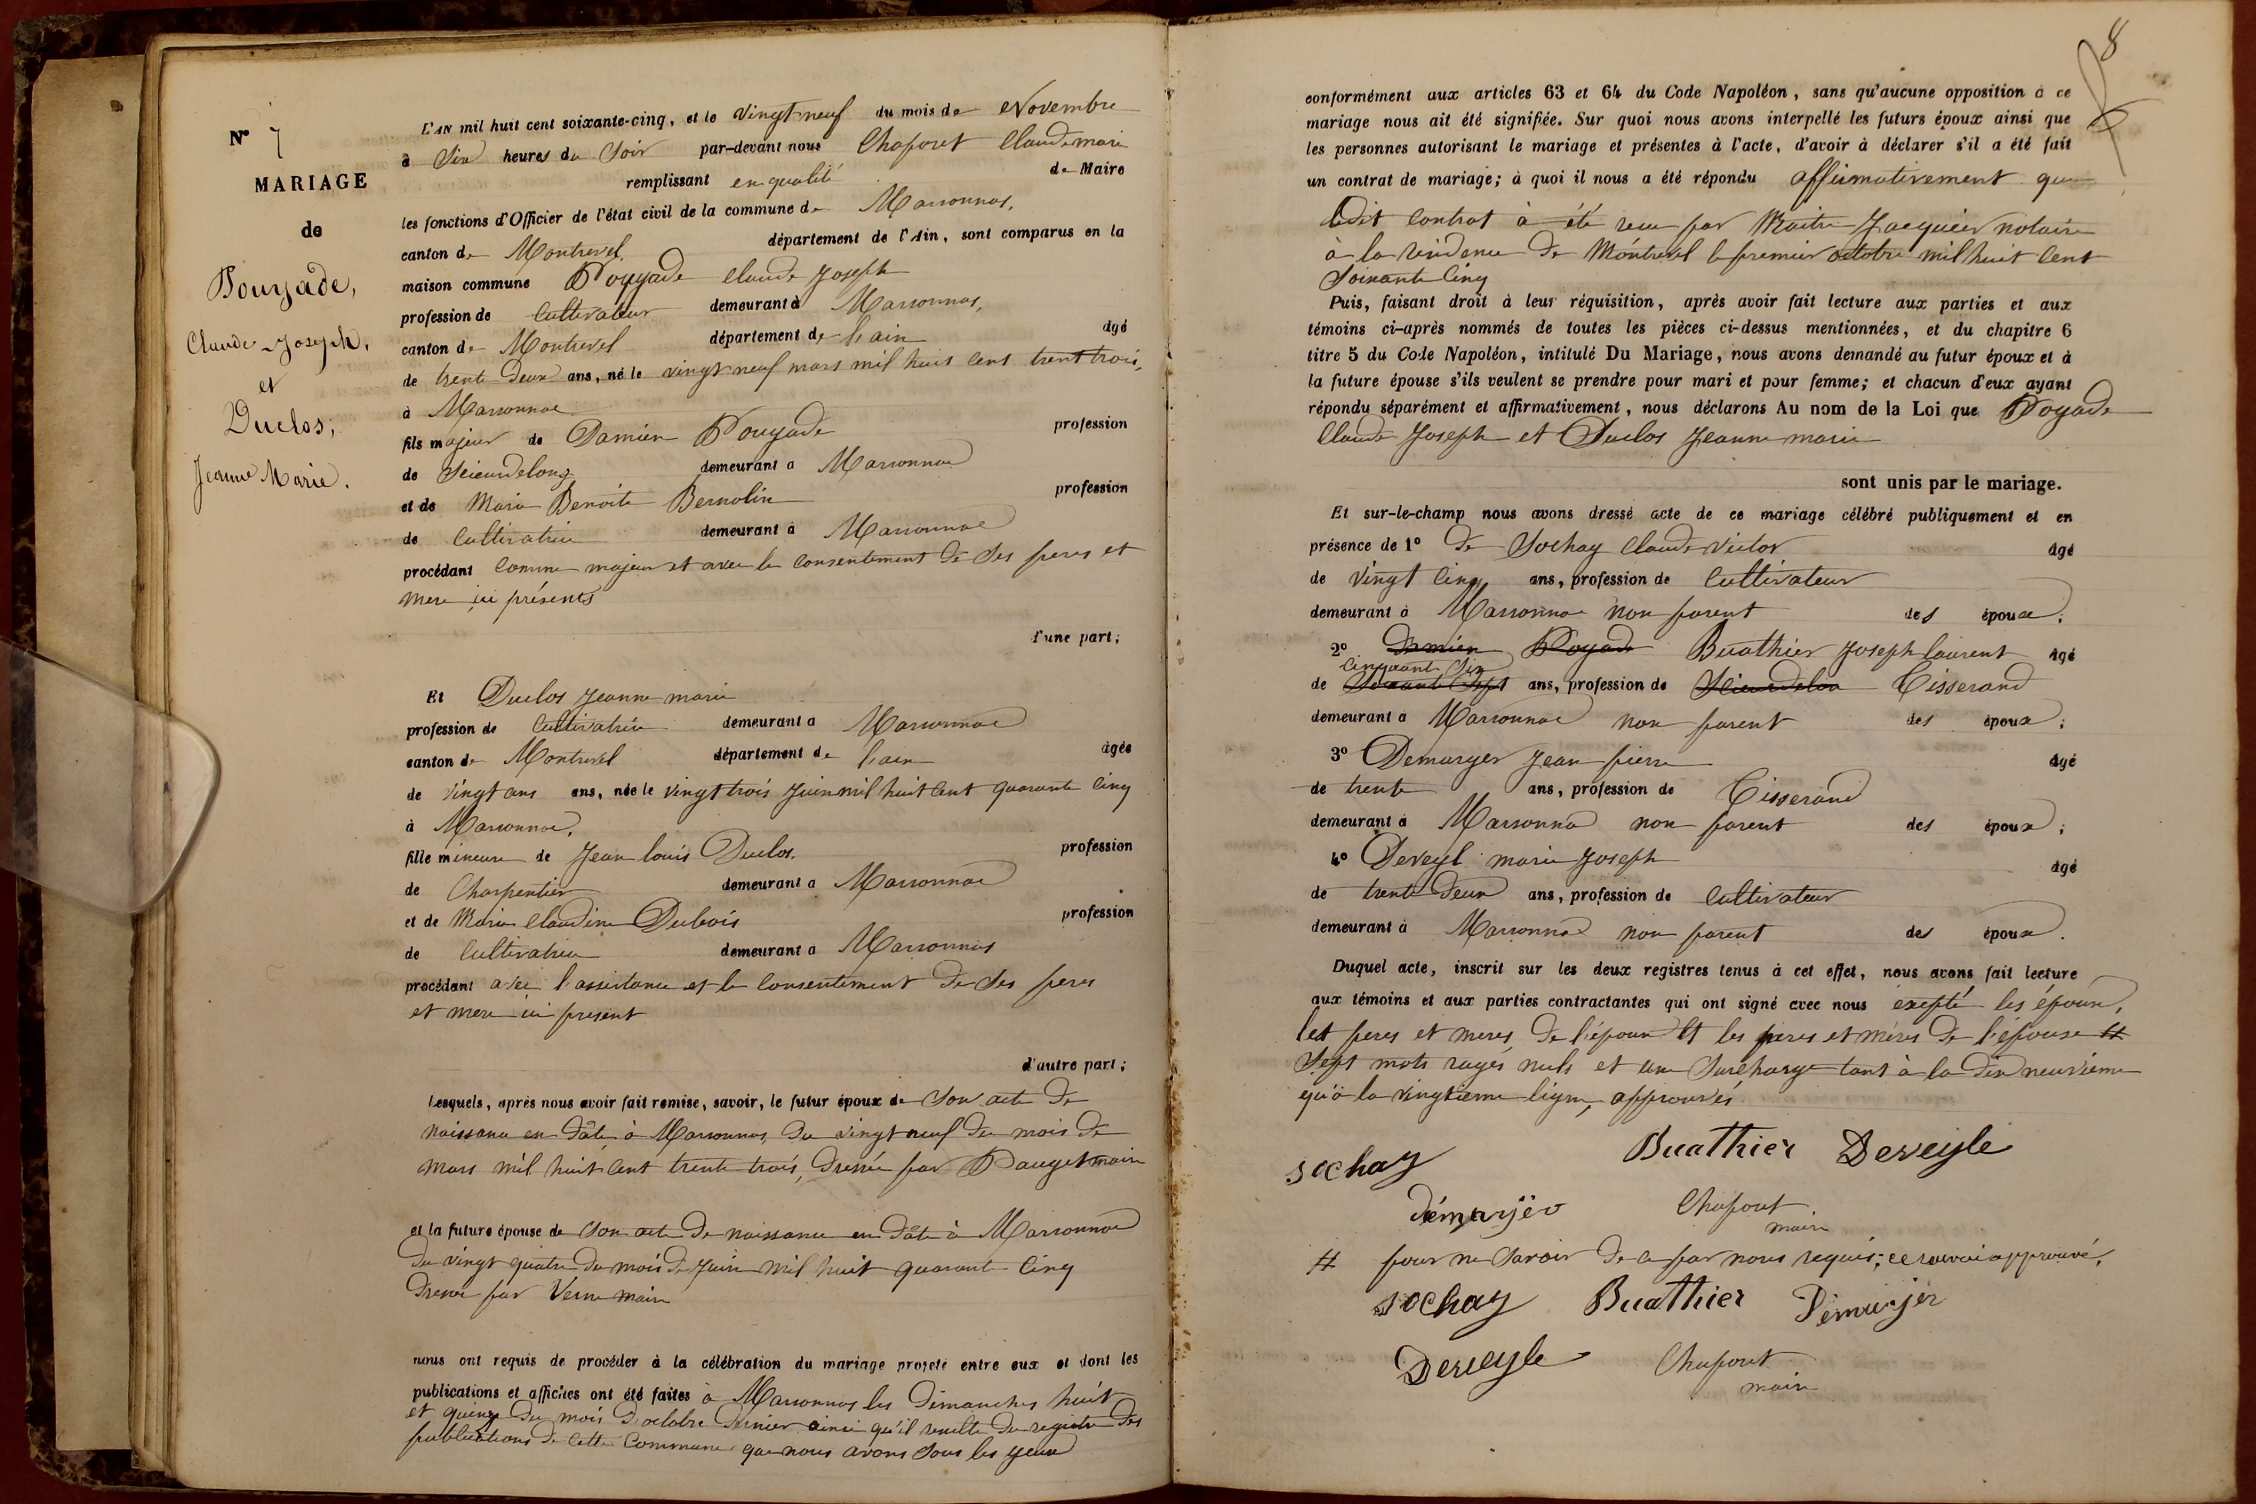 N° 7
MARIAGE
de
Pouyade,
Claude-Joseph,
et
Duclos,
Jeanne Marie.
L'AN mil huit cent soixante-cinq, et le vingt neuf du mois de Novembre
à Six heures du Soir par-devant nous Claude marie
remplissant en qualité de Maire
les fonctions d'Officier de l'état civil de la commune de Marsonnas,
canton de Montrevel département de l'Ain, sont comparus en la
maison commune Poyyade Claude Joseph
profession de Cultivateur demeurant à Marsonnas,
canton de Montrevel département de l'ain âgé
de trente Deux ans, né le vingt neuf mars mil huit cent trent trois,
à Marsonnas
fils majeur de Damien Pouyade profession
de Scieurdelong demeurant à Marsonnas
et de Marie Benoite Bernolin profession
de Cultivatrice demeurant à Marsonnas
procédant Comme majeur et avec le consentement de Ses peres et
mere ici présents
d'une part;
Et Duclos Jeanne marie
profession de Cultivatrice demeurant à Marsonnas
canton de Montrevel département de l'ain âgée
de vingt ans ans, née le vingt trois Juin mil huit cent quarante cinq
à Marsonnas.
fille mineure de Jean louis Duclos. profession
de Charpentier demeurant à Marsonnas
et de Marie Claudine Dubois profession
de Cultivatrice demeurant à Marsonnas
procédant avec l'assistance et le consentement de Ses peres
et mere ici present
d'autre part;
Lesquels, après nous avoir fait remise, savoir, le futur époux de Son acte de
naissance en date à Marsonnas, du vingt neuf du mois de
mars mil huit cent trente trois, Dressée par Pauget maire
et la future épouse de Son acte de naissance en date à Marsonnas
du vingt quatre du mois de Juin mil huit quarante Cinq
Dressée par Verne maire
nous ont requis de procéder à la célébration du mariage projeté entre eux et dont les
publications et affiches ont été faites à Marsonnas les Dimanches huit
et quinze du mois D'octobre dernier ainsi qu'il resulte du registre des
publications de cette Commune que nous avons Sous les yeux
8
conformément aux articles 63 et 64 du Code Napoléon, sans qu'aucune opposition à ce
mariage nous ait été signifiée. Sur quoi nous avons interpellé les futurs époux ainsi que
les personnes autorisant le mariage et présentes à l'acte, d'avoir à déclarer s'il a été fait
un contrat de mariage; à quoi il nous a été répondu affirmativement que
ledit Contrat à été recu par Maitre Jacquier notaire
à la residence de Montrevel le premier octobre mil huit Cent
Soixante Cinq
Puis, faisant droit à leur réquisition, après avoir fait lecture aux parties et aux
témoins ci-après nommés de toutes les pièces ci-dessus mentionnées, et du chapitre 6
titre 5 du Code Napoléon, intitulé Du Mariage, nous avons demandé au futur époux et à
la future épouse s'ils veulent se prendre pour mari et pour femme; et chacun d'eux ayant
répondu séparément et affirmativement, nous déclarons Au nom de la Loi que Poyade
Claude Joseph et Duclos Jeanne marie
sont unis par le mariage.
Et sur-le-champ nous avons dressé acte de ce mariage célébré publiquement et en
présence de 1° de Sochay Claude Victor âgé
de Vingt Cinq ans, profession de Cultivateur
demeurant à Marsonnas non parent des époux;
2° Damien Poyade Buathier Joseph laurent âgé
Cinquante Six
de Soixante Sept ans, profession de Scieurdelon Tisserand
demeurant à Marsonnas non parent des époux;
3° Demurger Jean pierre âgé
de trente ans, profession de Tisserand
demeurant à Marsonnas non parent des époux;
4° Deveyl marie Joseph âgé
de trente Deux ans, profession de Cultivateur
demeurant à Marsonnas non parent des époux.
Duquel acte, inscrit sur les deux registres tenus à cet effet, nous avons fait lecture
aux témoins et aux parties contractantes qui ont signé avec nous exepté les époux,
les peres et meres de l'époux et les peres et mères de l'épouse #
Sept mots rayés nuls et une Surcharge tant à la dix neuvième
qu'à la vingtieme ligne, approuvés
sochay Buathier Deveyle
Démurjér
maire
# pour ne Savoir de ce par nous requis; ce renvoi approuvé,
sochay Buathier Démurjer
Deveyle
maire